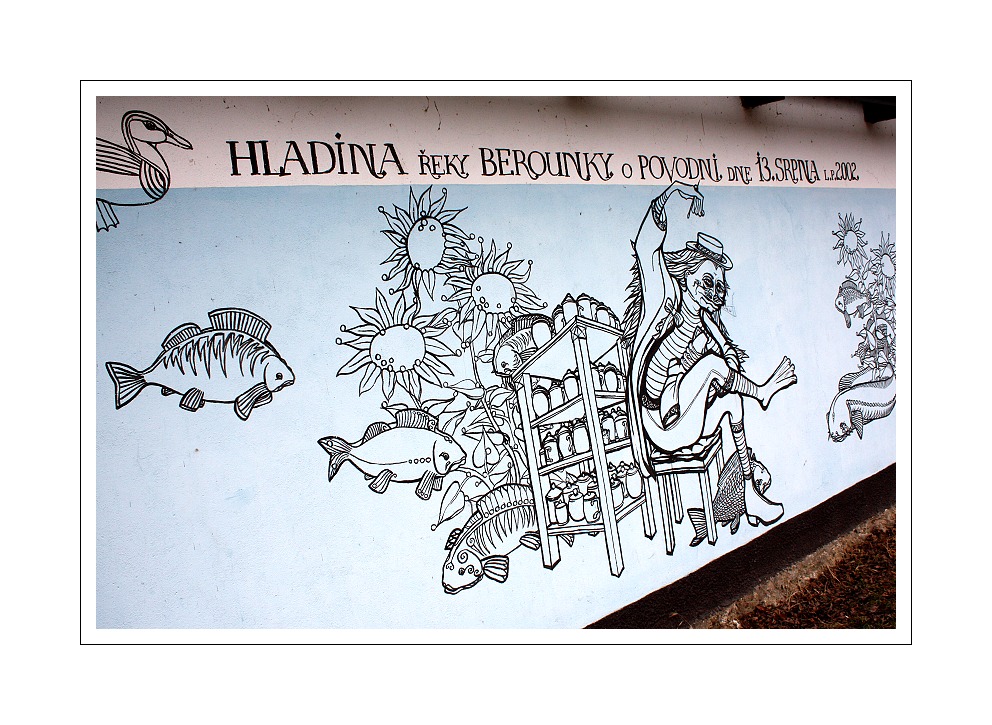 HLADINA ŘEKY BEROUNKY O POVODNI DNE 13. SRPNA L.P. 2002